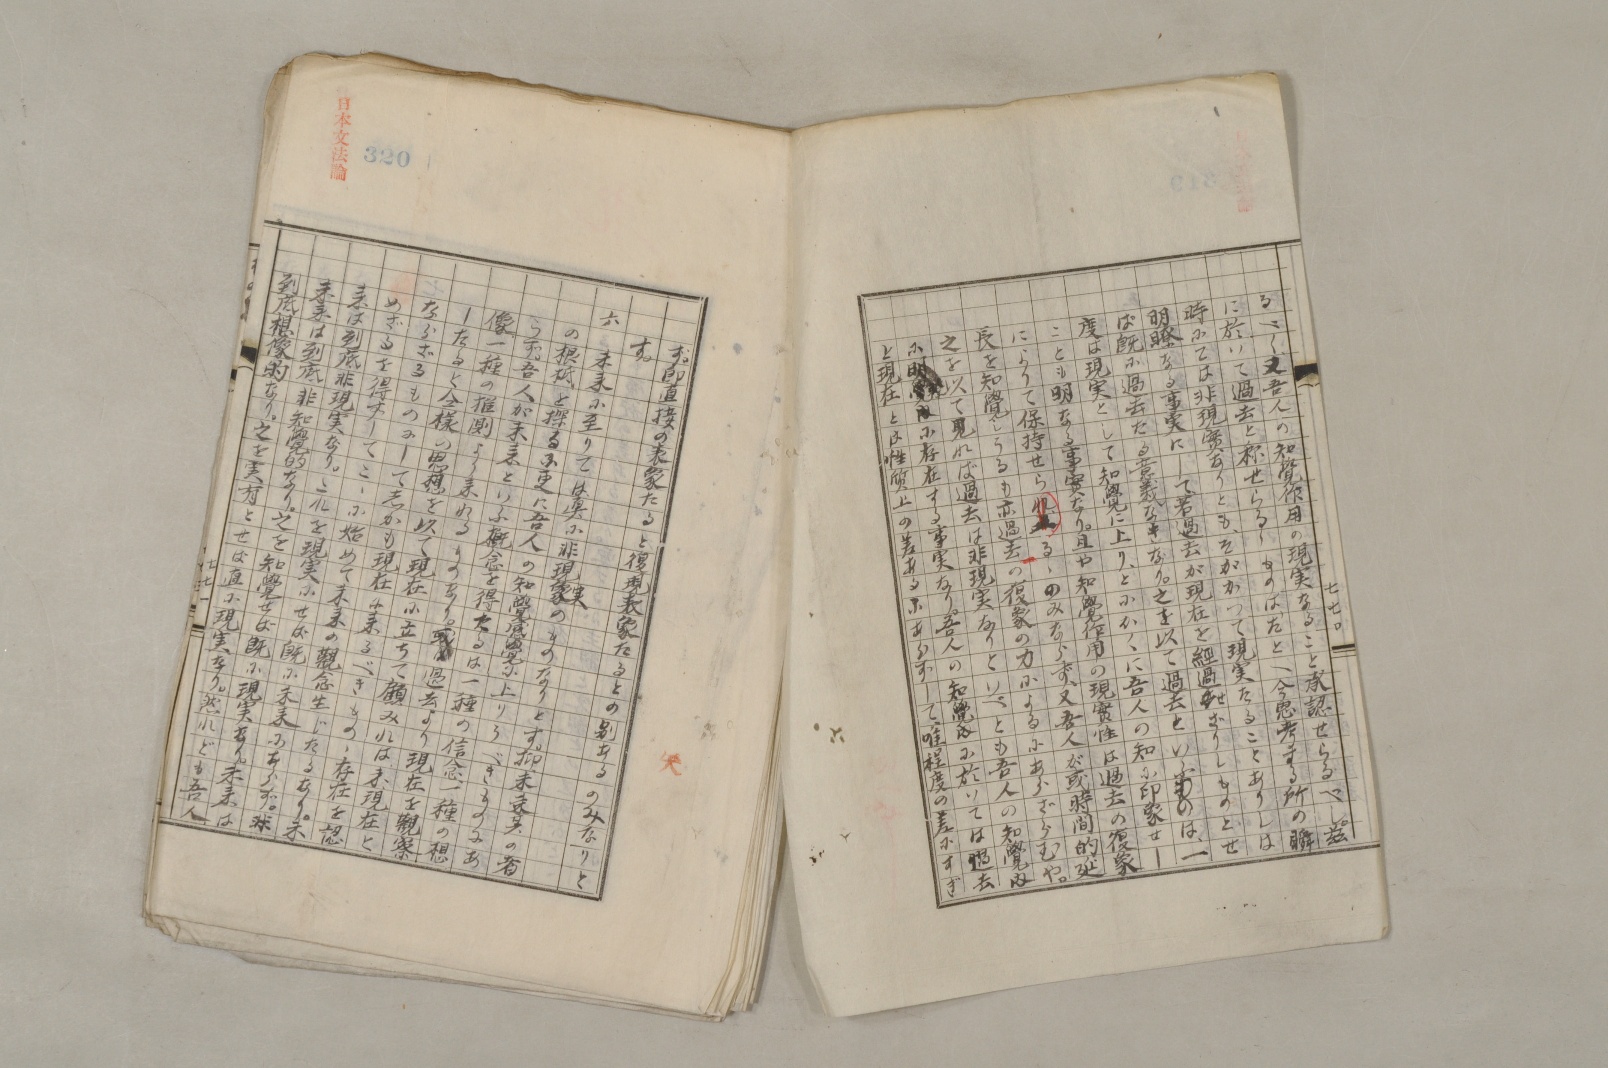 七七〇
るべく又吾人の知覺作用の現実なること承認せらるべし。茲
に於いて過去と称せらるゝものはたとへ今思考する所の瞬
時にては非現實なりとも、そがかつて現実たることありしは
明瞭なる事実にして若過去が現在を経過せざりしものとせ
ば既に過去たる意義なきなり。之を以て過去といふものは、一
度は現実として知覺に上り、とにかくに吾人の知に印象せし
ことも明なる事實なり。且や知覺作用の現實性は過去の復象
によりて保持せらるゝのみならず、又吾人が或時間的延
長を知覺しうるも亦過去の復象の力によるにあらざらむや。
之を以て見れば過去は非現実なりといへども吾人の知覺内
に明に存在する事実なり。吾人の知覺内に於いては過去
と現在とは性質上の差あるにあらずして、唯程度の差にすぎ
日本文法論
320
ず。即直接の表象たると復現表象たるとの別あるのみなりと
す。
六 未来に至りては真に非現実のものなりとす。抑未来其の者
の根柢を探るに更に吾人の知覺に上りうべきものにあ
らず。吾人が未来といふ概念を得たるは一種の信念一種の想
像一種の推測より来れるものなり。過去より現在を観察
したると全様の思想を以て現在に立ちて顧みれは未現在と
ならざるものにして、しかも現在に来るべきものゝ存在を認
めざるを得ずしてこゝに始めて未来の觀念生じたるなり。未
来は到底非現実なり。これを現実にせば既に未来にあらず。故
未来は到底非知覺的なり。之を知覺せば既に現実なり。未来は
到底想像的なり。之を実有とせば直に現実なり。然れども吾人
七七一